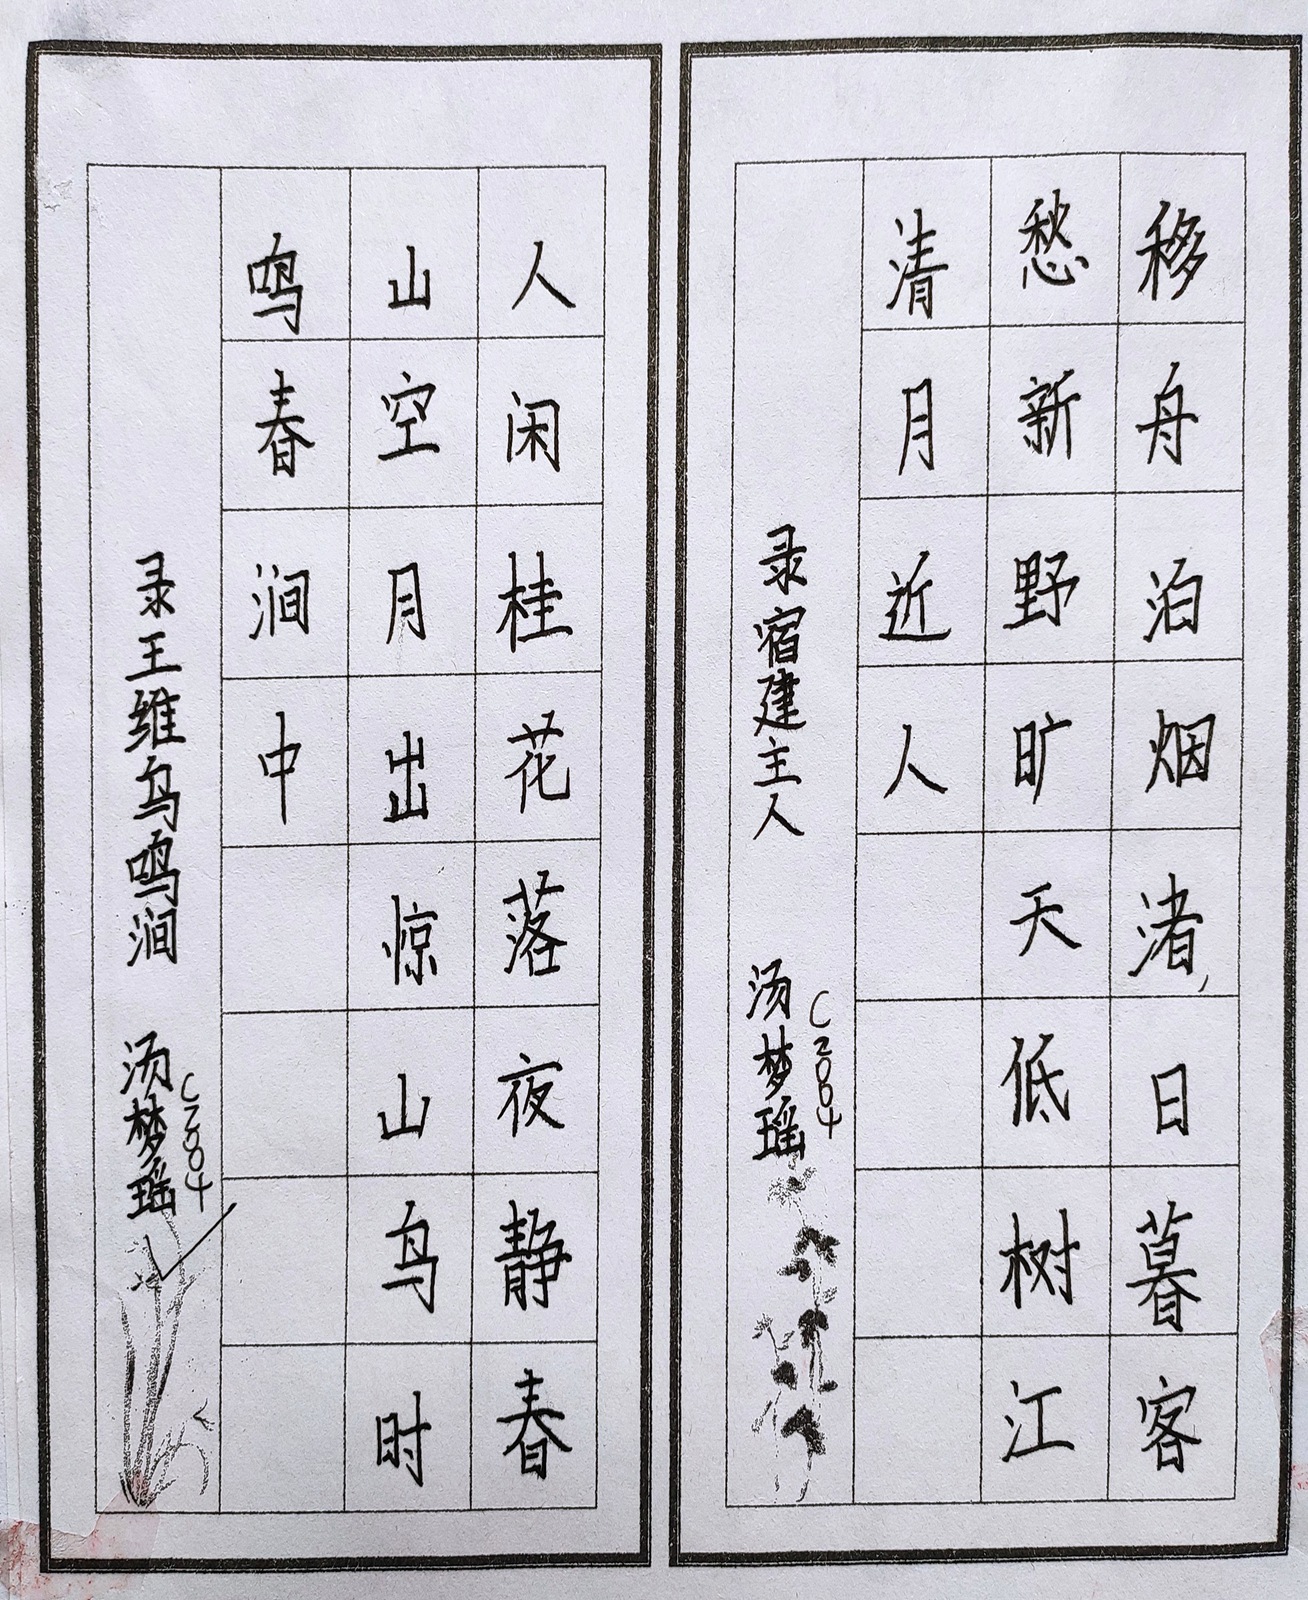 移舟泊烟渚,日暮客
愁新野旷天低树江
清月近人
录宿建主人 汤梦瑶
C2004
人闲桂花落夜静春
山空月出惊山鸟时
鸣春涧中
录王维鸟鸣涧 汤梦瑶
C2004